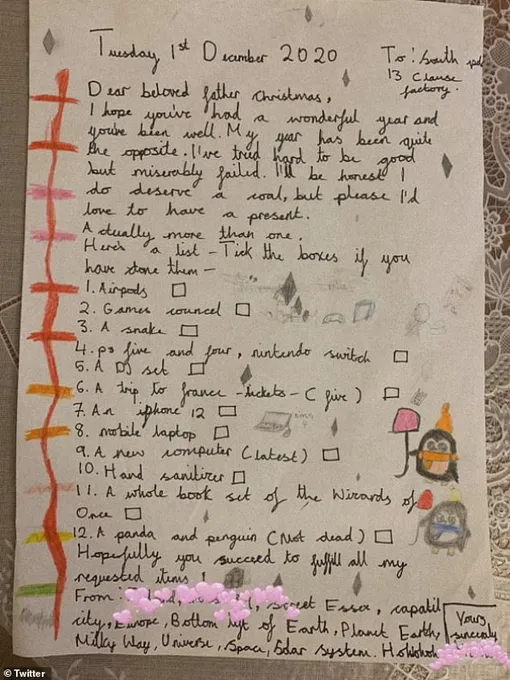 Tuesday 1st December 2020
To: South
13 Clause
factory.
Dear beloved father Christmas,
I hope you've had a wonderful year and
you've been well. My year has been quite
the opposite. I've tried hard to be good
but miserably failed. I'll be honest I
do deserve a coal, but please I'd
love to have a present.
Actually more than one.
Here's a list - Tick the boxes if you
have done them -
1. Airpods
2. Games councel
3. A snake
4. ps five and four, nintendo switch
5. A DJ set
6. A trip to france - tickets - (five)
7. An iphone 12
8. mobile laptop
9. A new computer (latest)
10. Hand sanitizer
11. A whole book set of the Wizards of
Once
12. A panda and penguin (Not dead)
Hopefully you succeed to fulfill all my
requested items!
From: Street Essex, capatil
city, Europe, Bottom of Earth, Planet Earth,
Milky Way, Universe, Space, Solar system. Hohohoh
Yours
sincerely
© Twitter